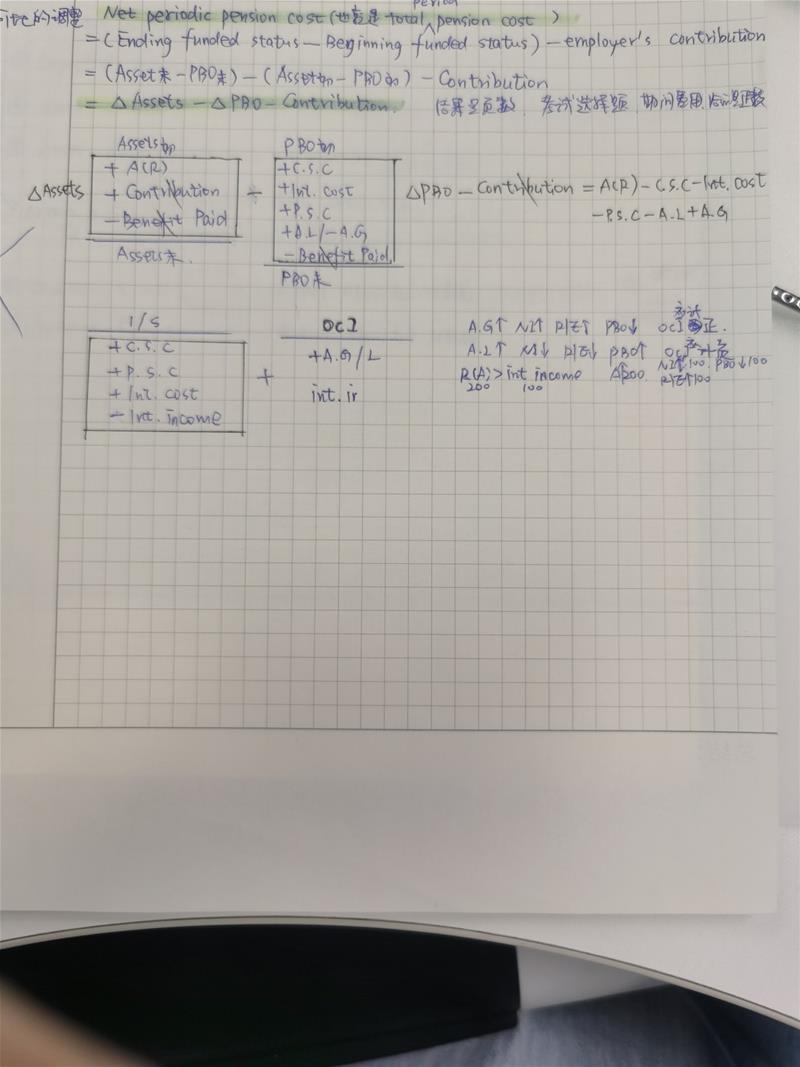 period
的调整 Net periodic pension cost (也就是total pension cost )
= (Ending funded status — Beginning funded status) — employer's contribution
= (Asset末 - PBO末) - (Asset初 - PBO初) - Contribution
= △ Assets - △ PBO - Contribution. 结果是负数, 考试选择题, 正数
Assets初
PBO初
+ A(R)
+ C.S.C
△Assets + Contribution - + Int. cost △PBO - Contribution = A(R) - C.S.C - Int. cost
- Benefit Paid + P.S.C - P.S.C - A.L + A.G
+ A.L / - A.G
Assets末. - Benefit Paid.
PBO末
I/S
OCI
+ C.S.C
+ A.G / L
+ P.S.C
+ Int. cost
int. ir
- Int. income
+
A.G↑ NI↑ PBO↓ OCI 正.
A.L↑ NI↓ PBO↑ OCI 负
R(A) > int income A↑200. NI↑100. PBO↓100
200 100 ↑100